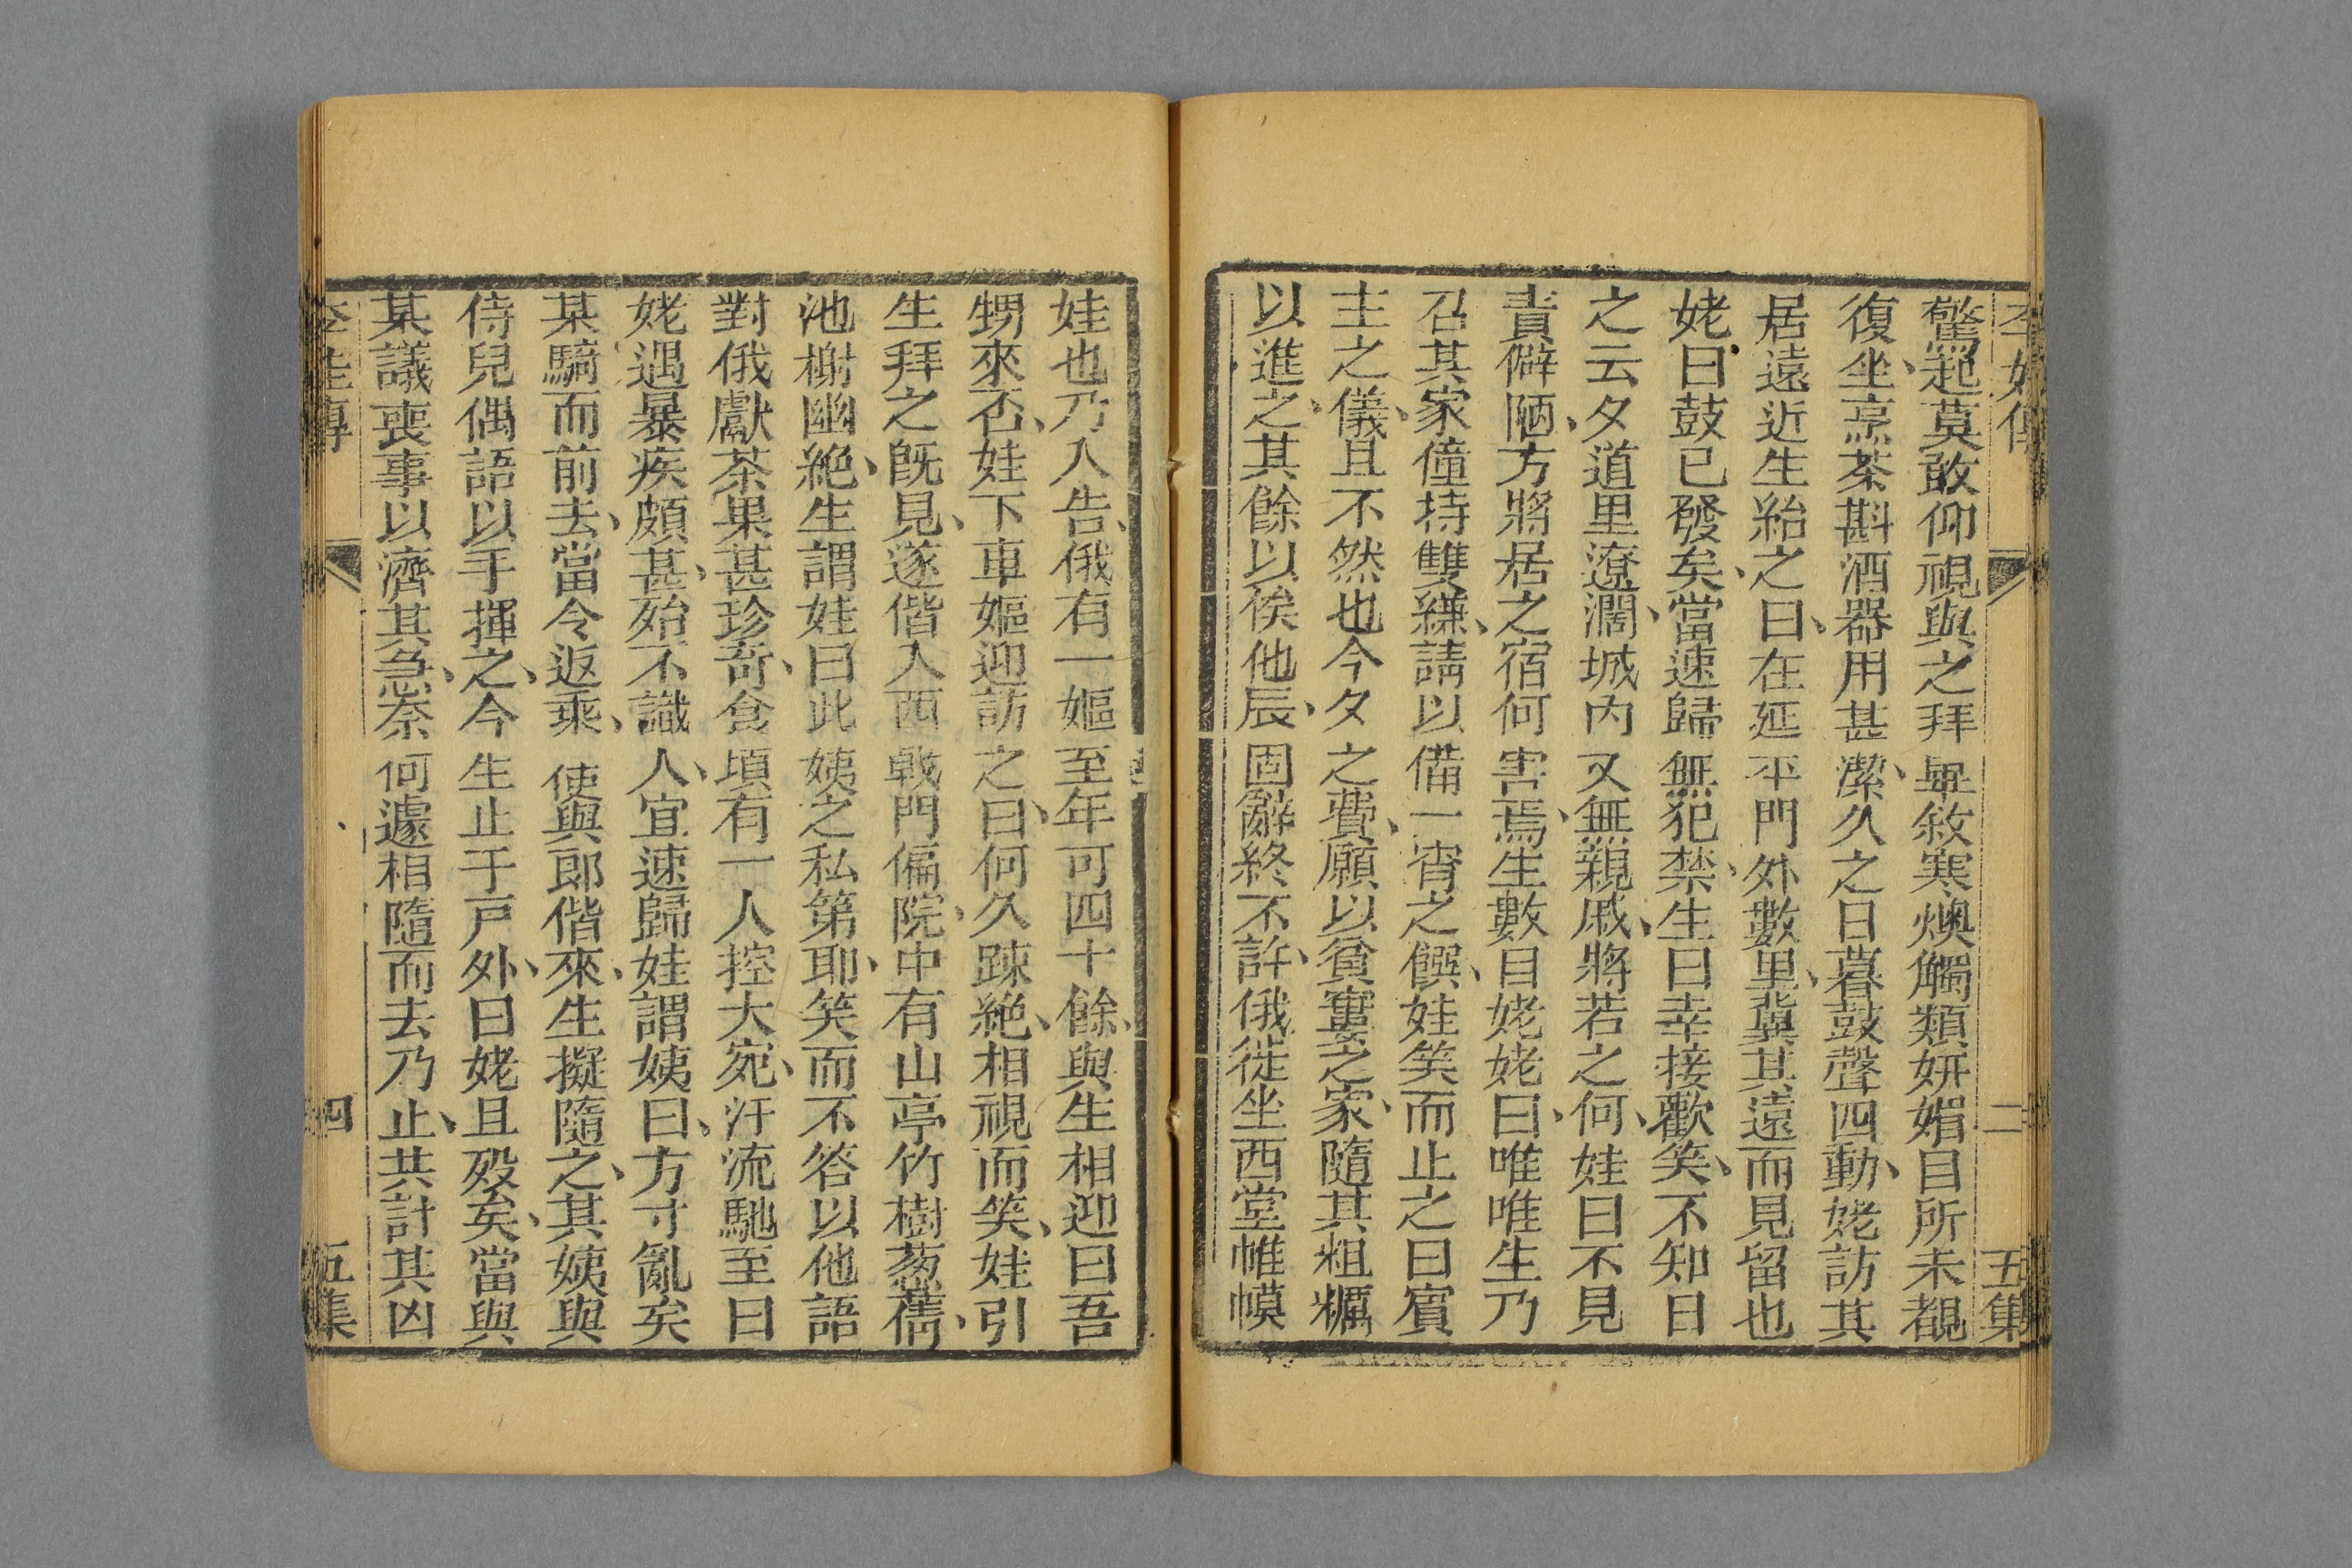 李娃傳 二 五集
驚起莫敢仰視與之拜畢敘寒燠觸類妍媚目所未覩
復坐、烹茶斟酒器用甚潔、久之日暮鼓聲四動、姥訪其
居遠近生紿之曰、在延平門外數里、冀其遠而見留也
姥曰鼓已發矣、當速歸無犯禁、生曰幸接歡笑、不知日
之云夕道里遼濶、城內又無親戚、將若之何、娃曰不見
責僻陋、方將居之宿何害焉、生數目姥姥曰、唯唯生乃
召其家僮持雙縑、請以備一宵之饌、娃笑而止之曰賓
主之儀、且不然也今夕之費、願以貧窶之家、隨其粗糲
以進之、其餘以俟他辰、固辭終不許、俄徙坐西堂帷幙
娃也乃入告、俄有一嫗至年可四十餘、與生相迎曰吾
甥來否、娃下車嫗迎訪之曰、何久踈絶、相視而笑、娃引
生拜之既見、遂偕入西戟門偏院、中有山亭竹樹葱蒨、
池榭幽絶、生謂娃曰此姨之私第耶、笑而不答以他語
對俄獻茶果甚珍奇、食頃有一人控大宛、汗流馳至曰
姥遇暴疾頗甚、殆不識人、宜速歸娃謂姨曰、方寸亂矣
某騎而前去、當令返乘、使與郎偕來、生擬隨之、其姨與
侍兒偶語以手揮之、令生止于戸外、曰姥且歿矣、當與
某議喪事以濟其急、奈何遽相隨而去乃止、共計其凶
李娃傳 四 五集